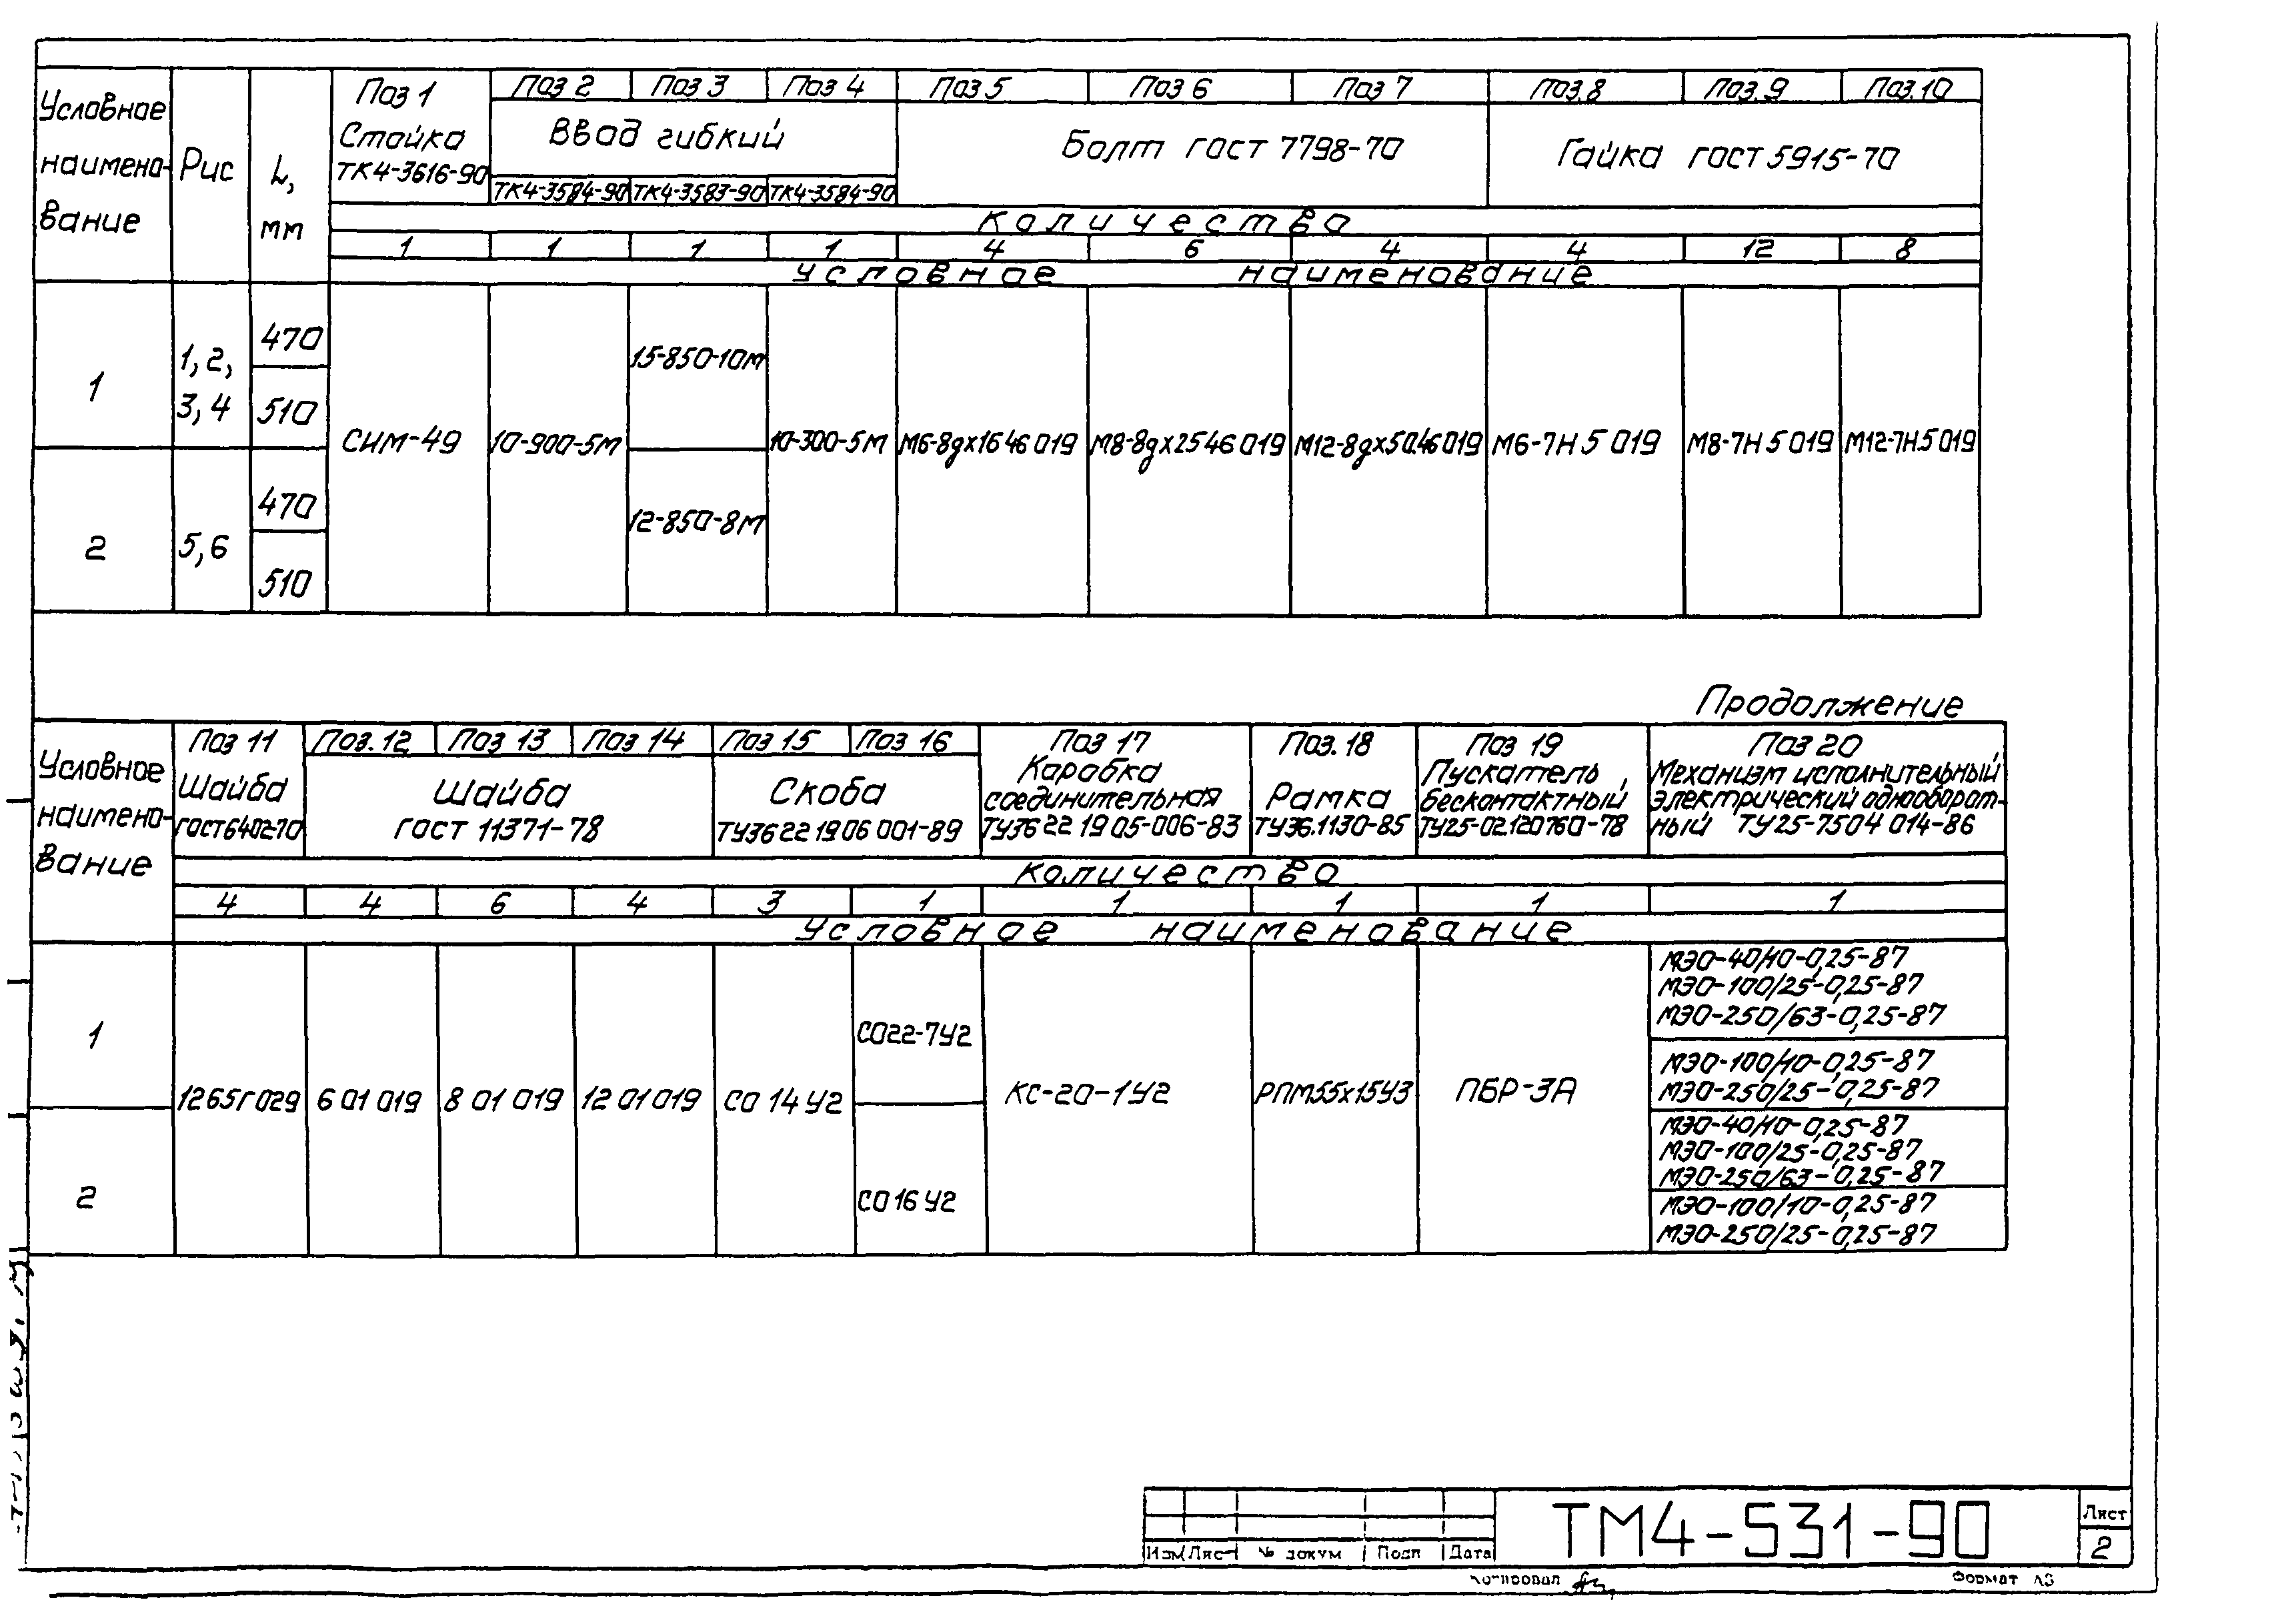 Условное наименование Рис L, мм
Поз 1 Поз 2 Поз 3 Поз 4 Поз 5 Поз 6 Поз 7 Поз.8 Поз.9 Поз.10
Стойка ТК4-3616-90
Ввод гибкий
ТК4-3584-90 ТК4-3583-90 ТК4-3584-90
Болт гост 7798-70
Гайка гост 5915-70
Количество
1 1 1 1 4 6 4 4 12 8
Условное наименование
1 1, 2, 3, 4 470 510
2 5, 6 470 510
СИМ-49 10-900-5М
15-850-10М
12-850-8М
10-300-5М М6-8gх16 46 019 М8-8gх25 46 019 М12-8gх50.46 019 М6-7Н 5 019 М8-7Н 5 019 М12-7Н.5 019
Продолжение
Условное наименование
Поз 11 Поз.12 Поз 13 Поз 14 Поз 15 Поз 16 Поз 17 Поз.18 Поз 19 Поз 20
Шайба ГОСТ6402-70
Шайба
гост 11371-78
Скоба
ТУ36 22 19 06 001-89
Коробка
соединительная
ТУ36 22 19 05-006-83
Рамка
ТУ36.1130-85
Пускатель
бесконтактный
ТУ25-02.120760-78
Механизм исполнительный
электрический однооборот-
ный ТУ25-7504 014-86
Количество
4 4 6 4 3 1 1 1 1 1
Условное наименование
1
2
12 65Г 029 6 01 019 8 01 019 12 01 019 СО 14 У2
СО22-7У2
СО 16 У2
КС-20-1У2 РПМ55х15У3 ПБР-3А
МЭО-40/10-0,25-87
МЭО-100/25-0,25-87
МЭО-250/63-0,25-87
МЭО-100/10-0,25-87
МЭО-250/25-0,25-87
МЭО-40/10-0,25-87
МЭО-100/25-0,25-87
МЭО-250/63-0,25-87
МЭО-100/10-0,25-87
МЭО-250/25-0,25-87
Изм Лист № докум Подп Дата
ТМ4-531-90
Лист
2
Копировал
Формат А3